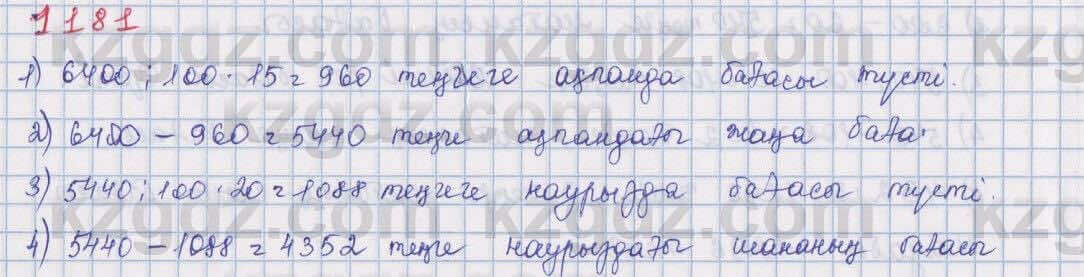 1181
1) 6400 : 100 · 15 = 960 теңгеге ақпанда бағасы түсті.
2) 6400 - 960 = 5440 теңге ақпандағы жаңа баға.
3) 5440 : 100 · 20 = 1088 теңгеге наурызда бағасы түсті.
4) 5440 - 1088 = 4352 теңге наурыздағы шананың бағасы